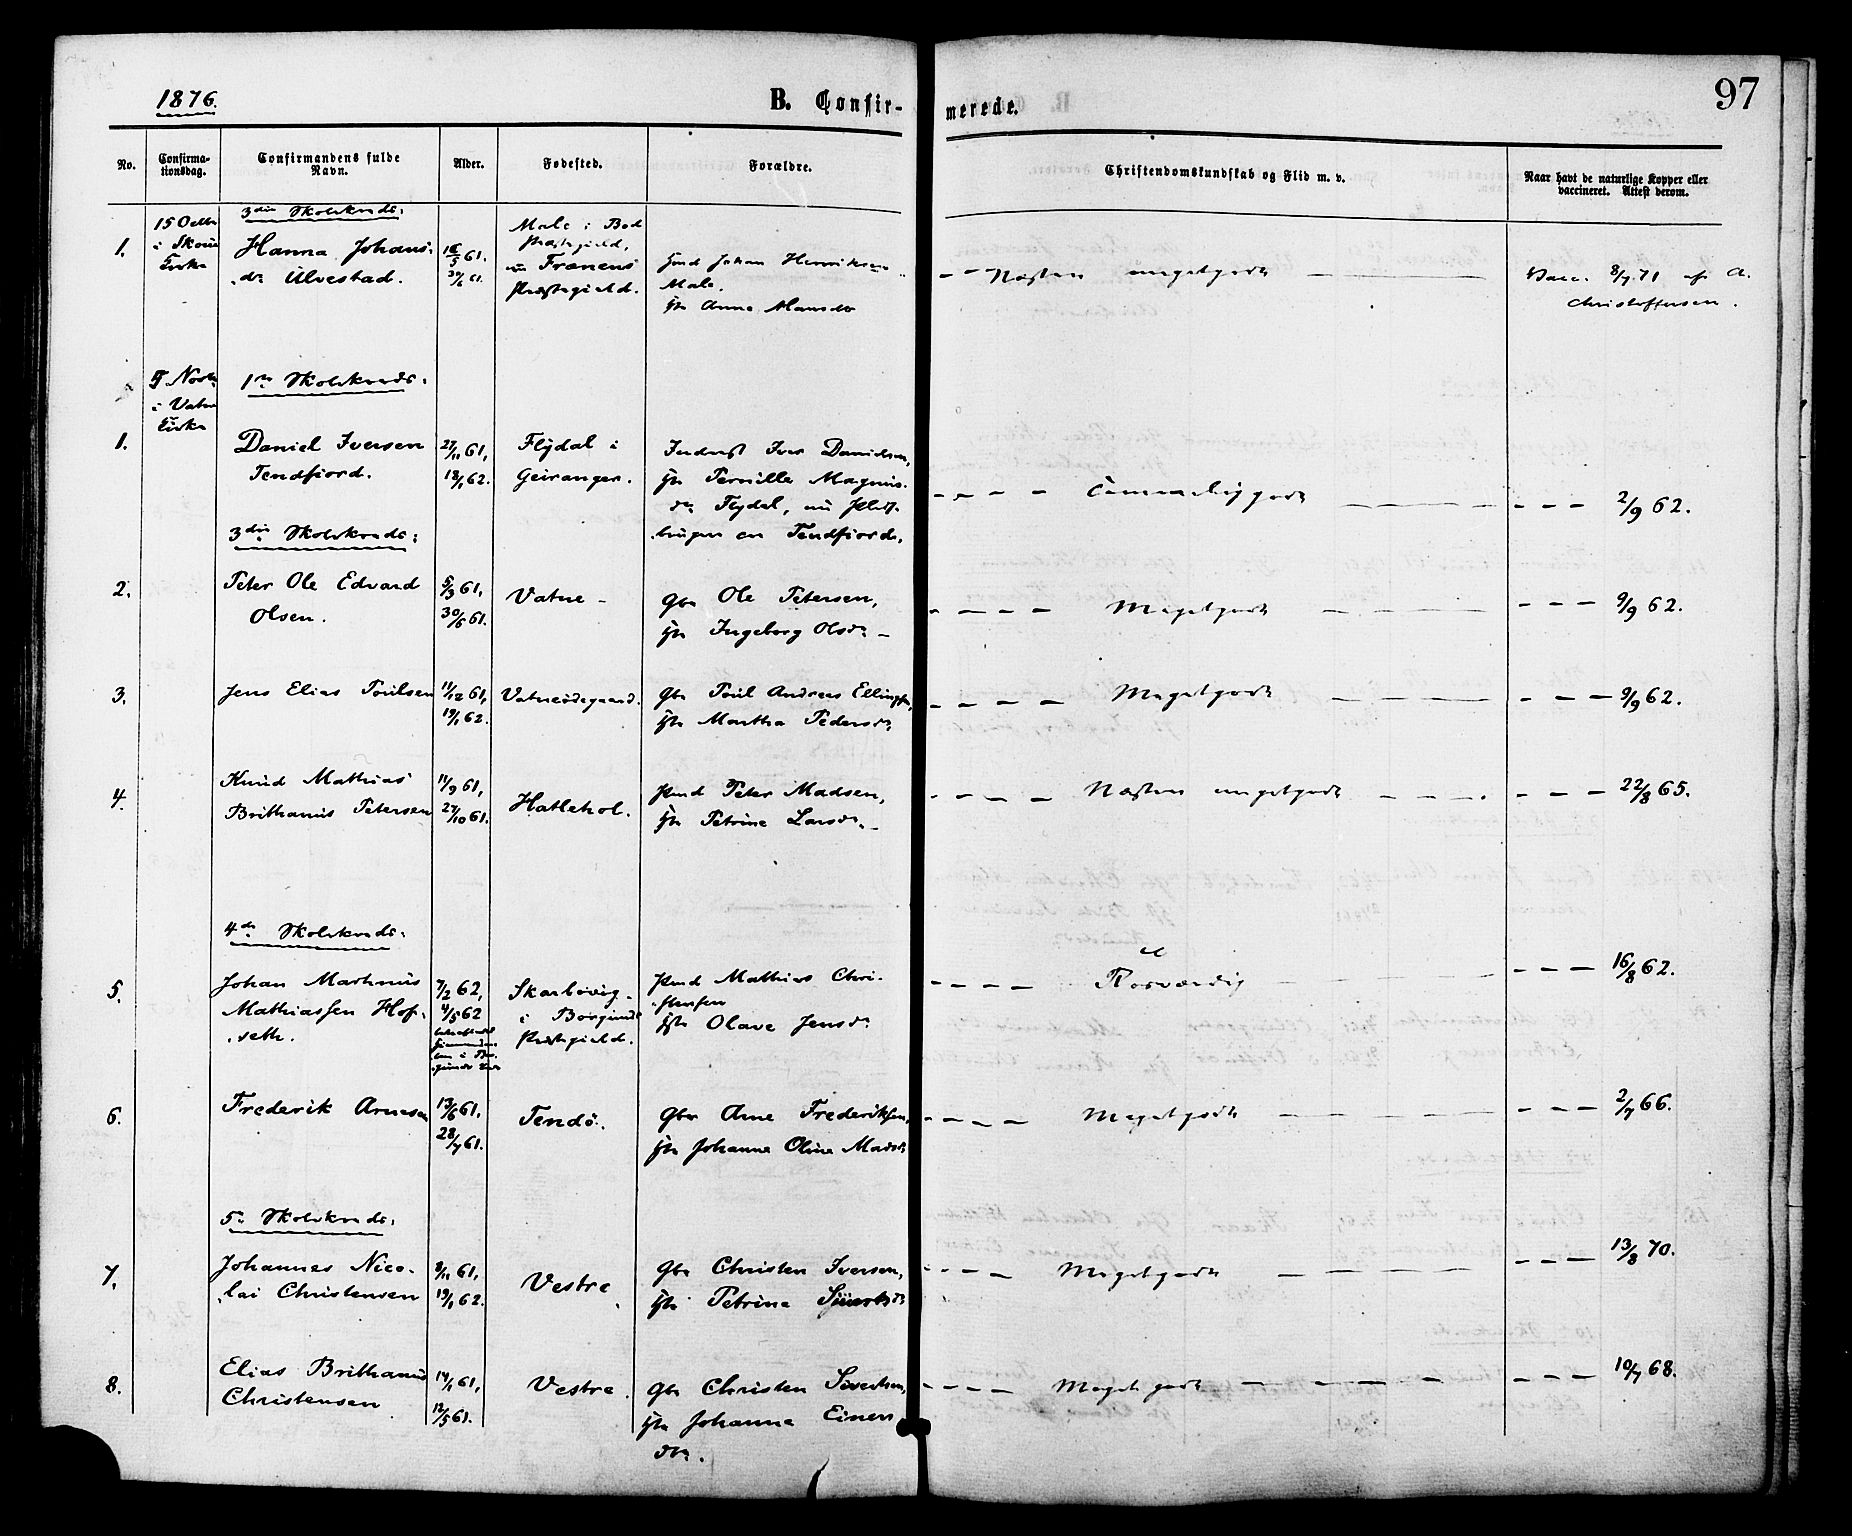 1876.
B. Confir-
merede.
97
No.
Confirma-
tionsdag.
Confirmandens fulde
Navn.
Alder.
Fødested.
Forældre.
Christendomskundskab og Flid m. v.
Naar havt de naturlige Kopper eller
vaccineret. Attest derom.
3die Skolekreds.
1.
15 Octbr
i Skou
Kirke
Hanna Johans-
dr Ulvestad.
16/5 61.
30/6 61.
Male i Bod
Præstegield,
nu Frænens
Præstegield.
Johan Henriksen
Male.
Anna Hansdr
- - Næsten megetgodt
Vacc. 8/7 71 af A.
Christoffersen.
5 Novbr
i Vatne
Kirke
1ste Skolekreds.
1.
Daniel Iversen
Tendfjord.
27/11 61,
18/1 62.
Flydal i
Geiranger.
Inderst Iver Danielsen,
Pernille Magnus-
dr Flydal, nu Plads-
bruger on Tendfjord.
- - - - Temmelig godt
- - - 2/9 62.
3die Skolekreds.
2.
Peter Ole Edvard
Olsen.
5/3 61,
30/6 61.
Vatne -
Gbr Ole Petersen,
Ingeborg Olsdr -
- - - - Megetgodt
- - - 9/9 62.
3.
Jens Elias Poulsen
11/12 61,
19/1 62.
Vatneødegaard.
Gbr Poul Andreas Ellingsen,
Martha Pedersdr
- - - - Megetgodt
- - - 9/9 62.
4.
Knud Mathias
Brithanus Petersen
11/9 61,
27/10 61.
Hatlehol.
Pmd Peter Madsen,
Petrine Larsdr -
- - - - Næsten megetgodt
- - - 22/8 65.
4de Skolekreds.
5.
Johan Martinus
Mathiassen Hof-
seth.
7/2 62,
4/5 62
Skarbøvig
i Borgunds
Præstegield.
Pmd Mathias Chri-
stensen
Olave Jensdr
- - - - Rosværdig
- - - 16/8 62.
6.
Frederik Arnesen
13/6 61.
28/7 61.
Tendø.
Gbr Arne Frederiksen,
Johanna Oline Madsdr
- - - - Megetgodt
- - - 2/7 66.
5te Skolekreds.
7.
Johannes Nico-
lai Christensen
9/11 61,
19/1 62.
Vestre
Gbr Christen Iversen,
Petrine Sjurtsdr
- - - - Megetgodt
- - - 13/8 70.
8.
Elias Brithanus
Christensen
14/1 61,
12/5 61.
Vestre.
Gbr Christen Sivertsen,
Johanna Einers
dr.
- - - - Meget godt
- - - 10/7 68.